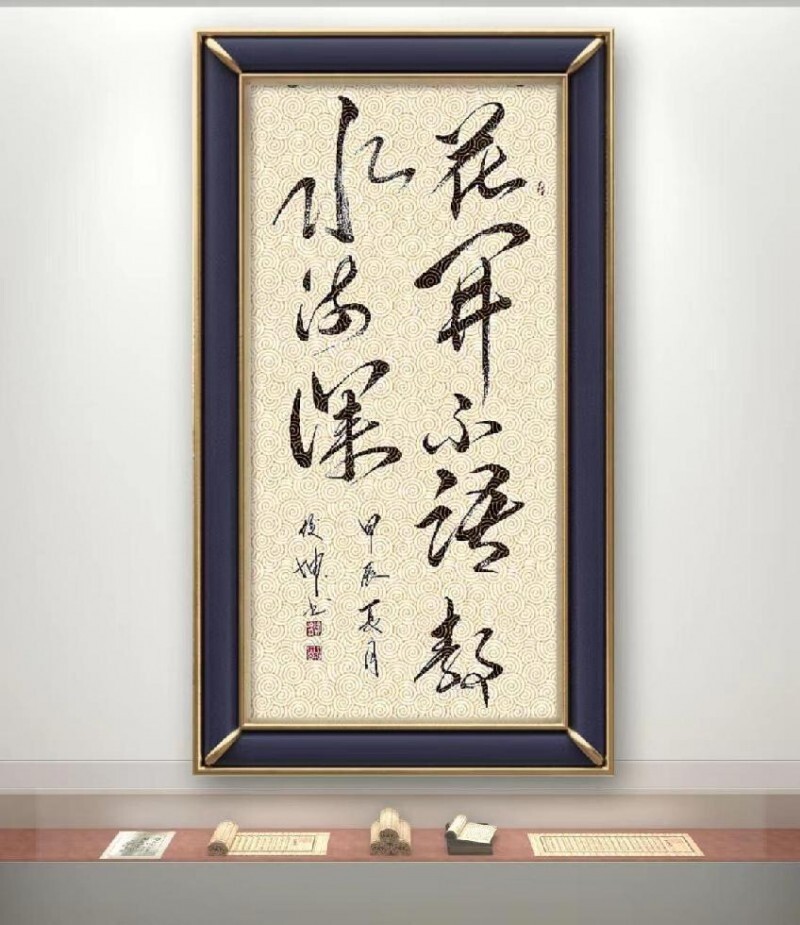 花開不語靜
水流深
甲辰夏月
俊坤书